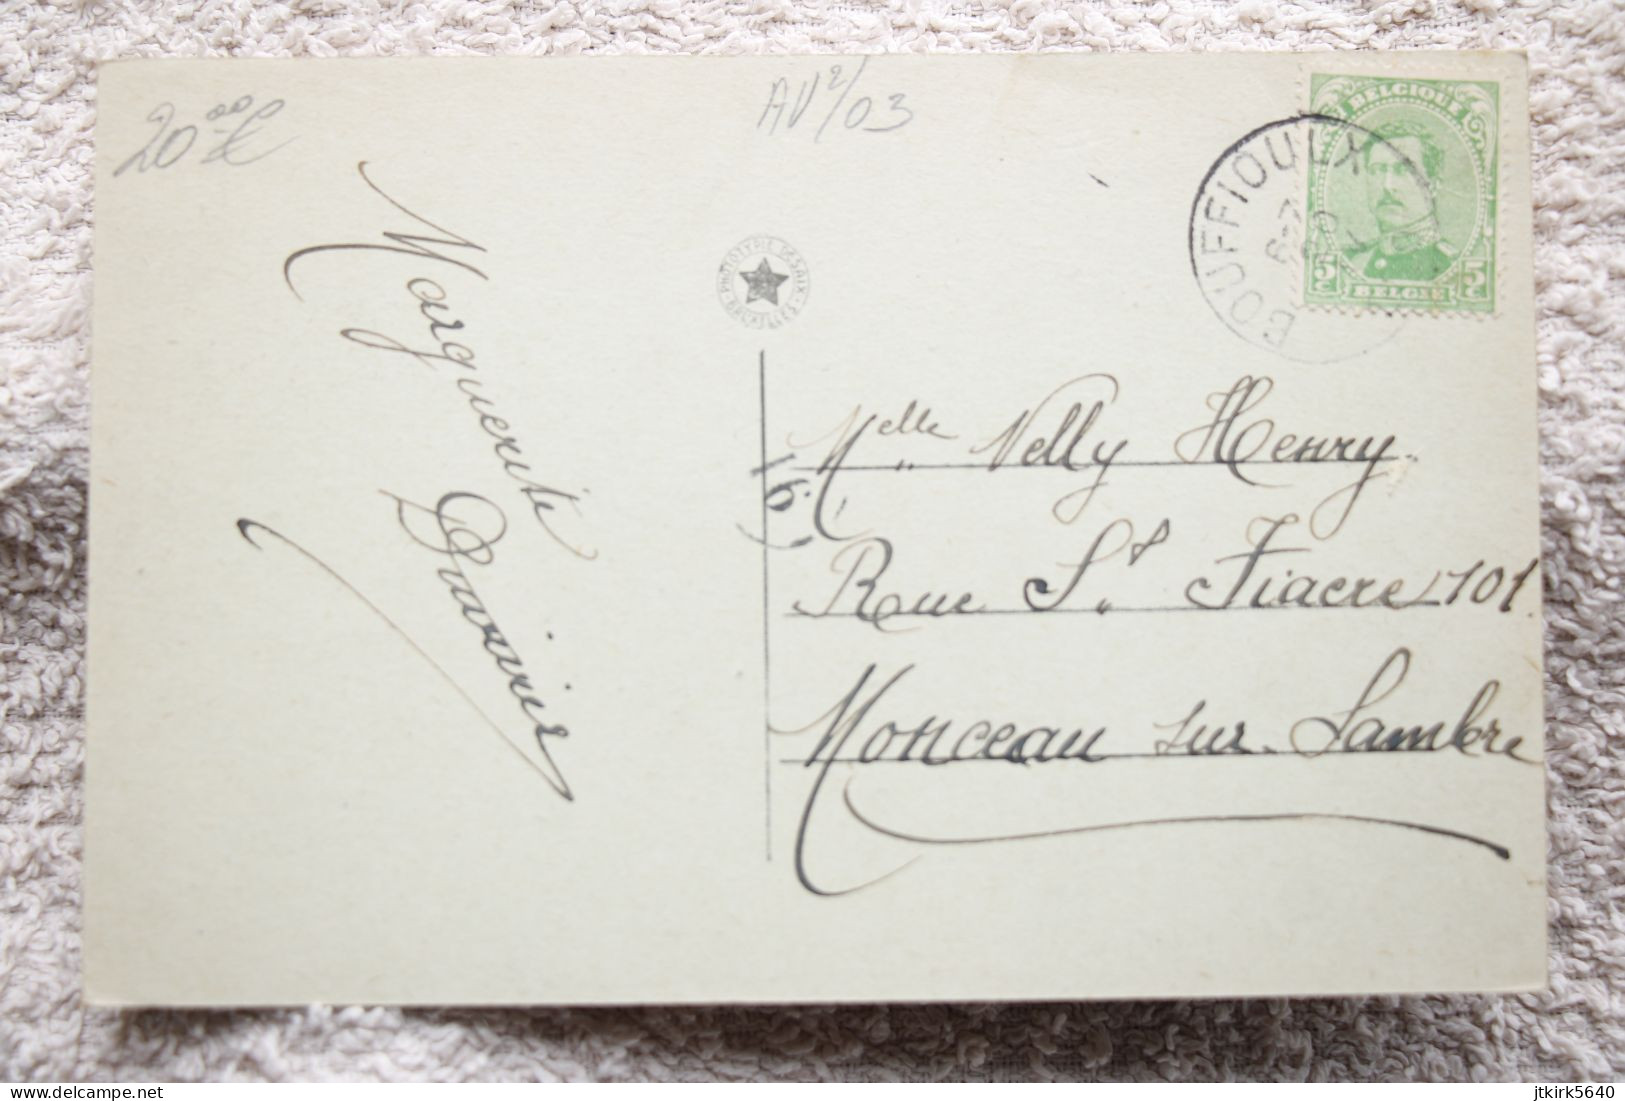 20⁰⁰ €
AV²/03
BELGIQUE
5 C 5 C
BELGIË
BOUFFIOULX
6-7
PHOTOTYPIE DESAIX - BRUXELLES -
Marguerite
Mᵉˡˡᵉ Nelly Henry.
16
Rue Sᵗ Fiacre 101
Monceau sur Sambre
delcampe.net
jtkirk5640